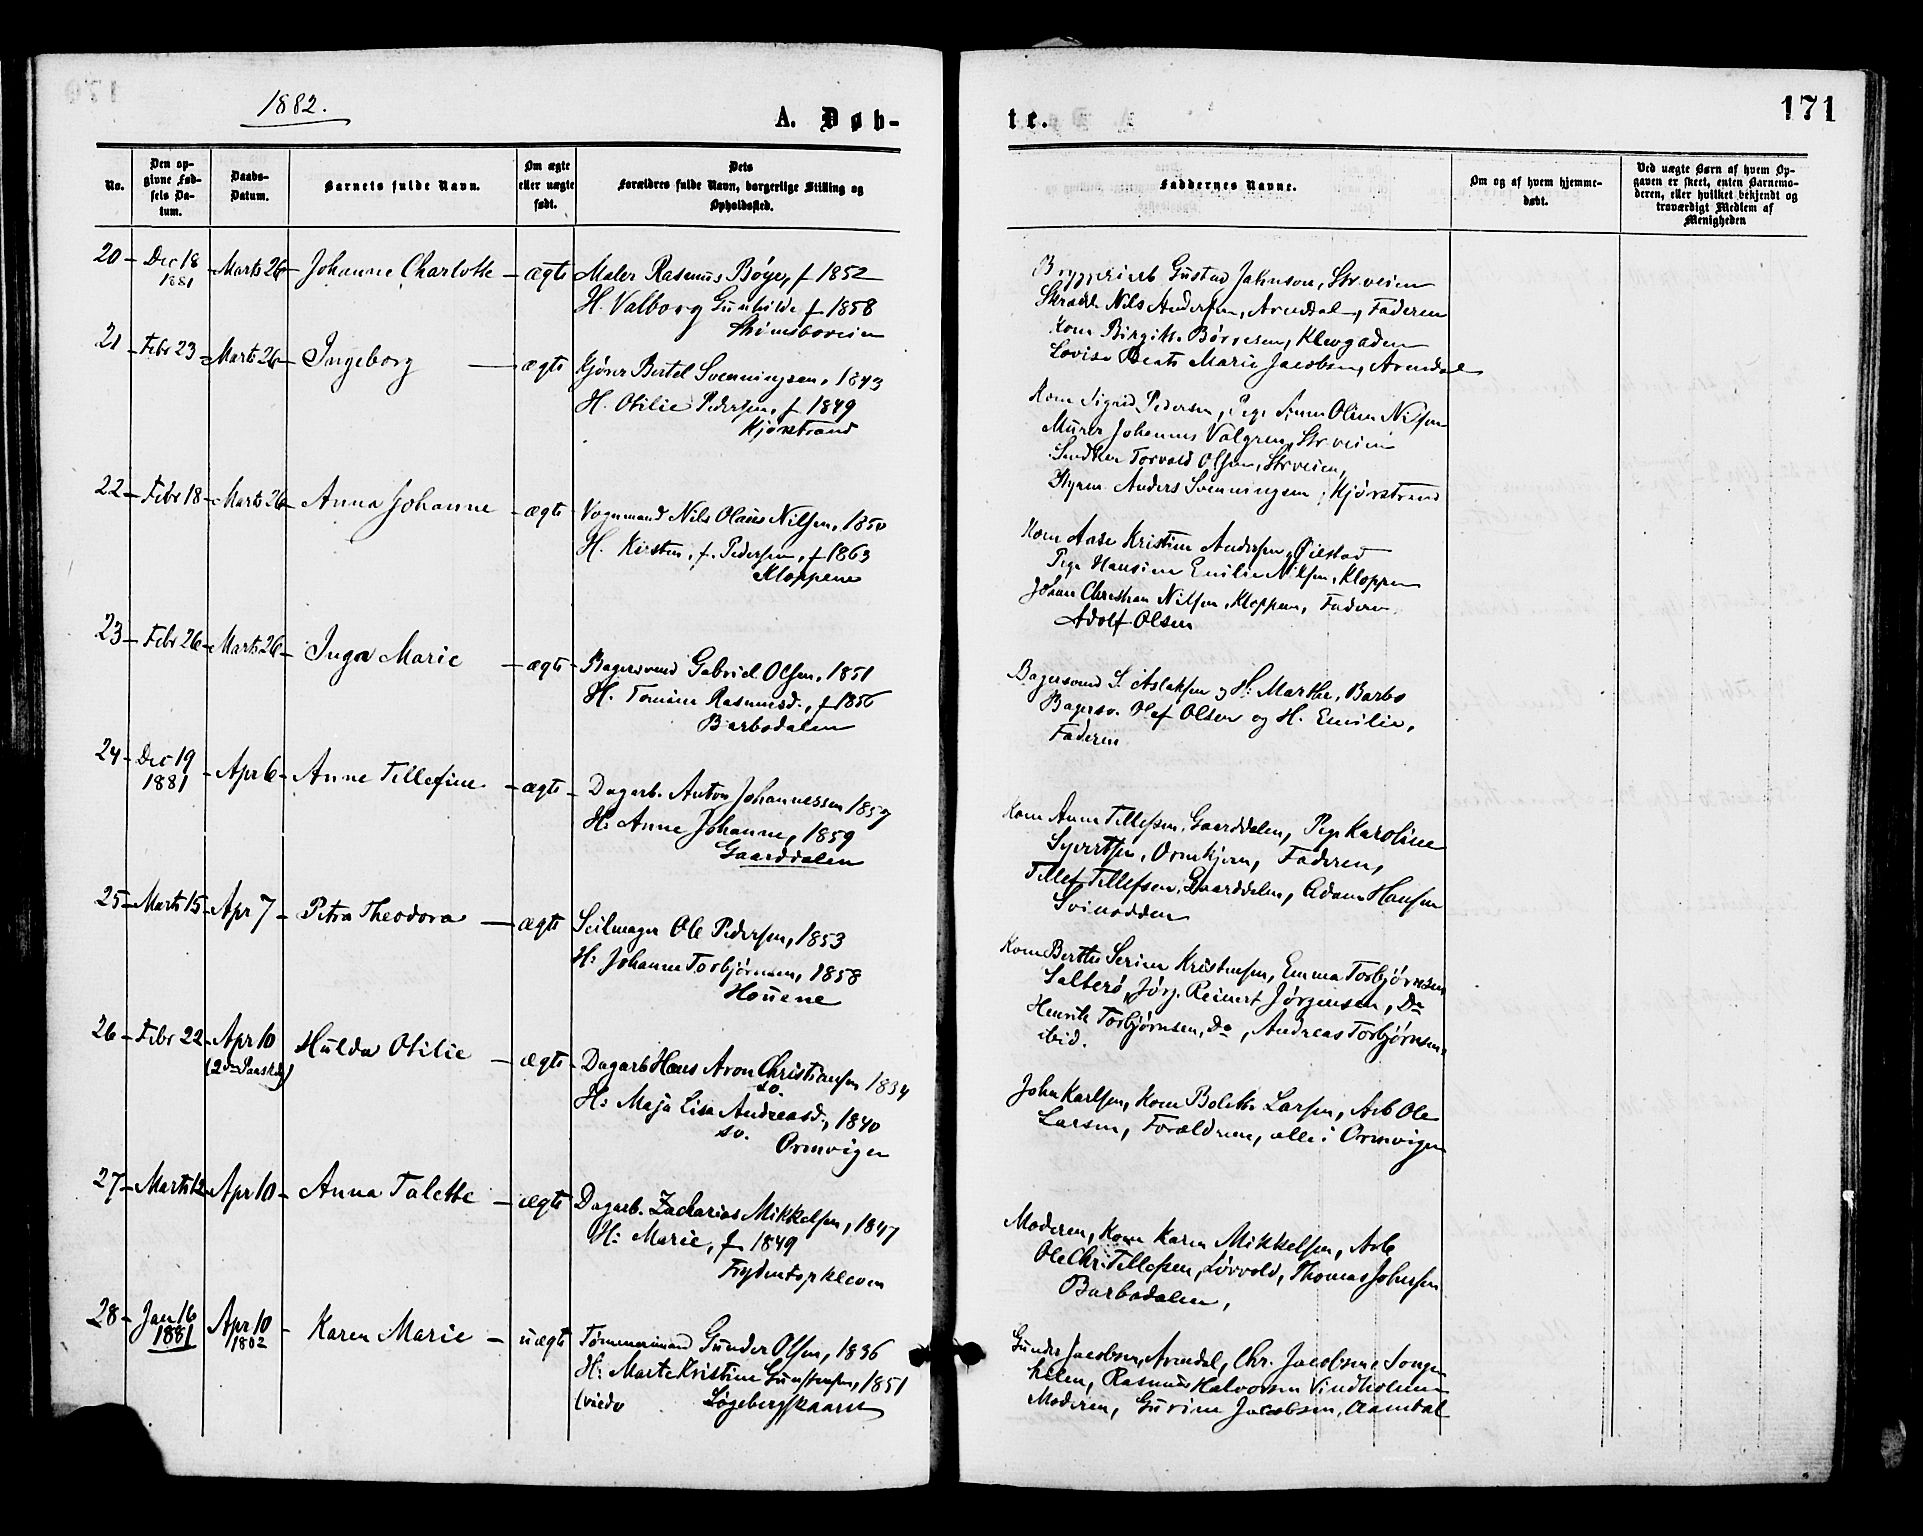 1882.
A. Døb-
No.
Den op-
givne Fød-
sels Da-
tum.
Daabs-
Datum.
Barnets fulde Navn.
Om ægte
eller uægte
født.
Dets
Forældres fulde Navn, borgerlige Stilling og
Opholdssted.
20 Dec 18 Marts 26 Johanne Charlotte ægte Maler Rasmus Bøye, f 1852
1881
H. Valborg Gunhilde f 1858
21 Febr 23 Marts 26 Ingeborg ægte Bertel Svenningsen, 1843
H. Otilie Pedersen, f 1849
Kjørstrand
22 Febr 18 Marts 26 Anna Johanne ægte Vognmand Nils Olaus Nilsen, 1850
H. Kirsten, f. Pedersen, f 1863
Kloppene
23 Febr 26 Marts 26 Inga Marie ægte Bagersvend Gabriel Olsen, 1851
H. Tomine Rasmusd., f 1856
Barbodalen
24 Dec 19 Apr 6 Anne Tillefine ægte Dagarb. Anton Johannessen 1857
1881
H: Anne Johanne, 1859
Gaarddalen
25 Marts 15 Apr 7 Petra Theodora ægte Seilmager Ole Pedersen, 1853
H: Johanne Torbjørnsen, 1858
Houene
26 Febr 22 Apr 10 Hulda Otilie ægte Dagarb Hans Aron Christiansen 1834
(2den Paaskd) sv.
H: Maja Lisa Andreasd., 1840
sv.
Ormvigen
27 Marts 12 Apr 10 Anna Talette ægte Dagarb. Zacharias Mikkelsen, 1847
H: Marie, f 1849
28 Jan 16 Apr 10 Karen Marie uægte Tømmermand Gunder Olsen, 1836
1881 1882
H: Marte Kristine 1851
Løgebergskaaret
te.
171
Faddernes Navne.
Om og af hvem hjemme-
døbt.
Ved uægte Børn af hvem Op-
gaven er skeet, enten Barnemo-
deren, eller hvilket bekjendt og
troværdigt Medlem af
Menigheden
Bryggeriarb Gustav Johnson, Strveien
Nils Andersen, Arendal, Faderen
Kone Birgitte Børresen, Klevgaden
Lovise Beate Marie Jacobsen, Arendal
Kone Sigrid Pedersen, Pige Olsen Nilsen
Murer Johannes Valgren, Strveien
Torvald Olsen, Strveien,
Anders Svenningsen, Kjørstrand
Kone Aase Kristine Andersen, Øiestad
Pige Hansine Emilie Nilsen, Kloppen
Johan Christian Nilsen, Kloppen, Faderen
Adolf Olsen
Bagersvend S. Aslaksen og H: Marthe, Barbo
Bagersv. Olaf Olsen og H. Emilie,
Faderen
Kone Anne Tellefsen, Gaarddalen, Pige Karoline
Syvertsen, Ormekjern, Faderen,
Tellef Tellefsen, Gaarddalen, Adam Hansen
Svinodden
Kone Berthe Serine Kristensen, Emma Torbjørnsen,
Salterø, Jørg. Reinert Jørgensen, Do
Henrik Torbjørnsen, Do, Andreas Torbjørnsen,
ibid.
John Karlsen, Kone Bolette Larsen, Arb Ole
Larsen, Forældrene, alle i Ormvigen
Moderen, Kone Karen Mikkelsen, Arb
Ole Chr. Tellefsen, Thomas Johnsen
Barbodalen,
Gunder Jacobsen, Arendal, Chr. Jacobsen, Songe
Rasmus Halvorsen Vindholmen
Moderen, Gurine Jacobsen, Aamdal